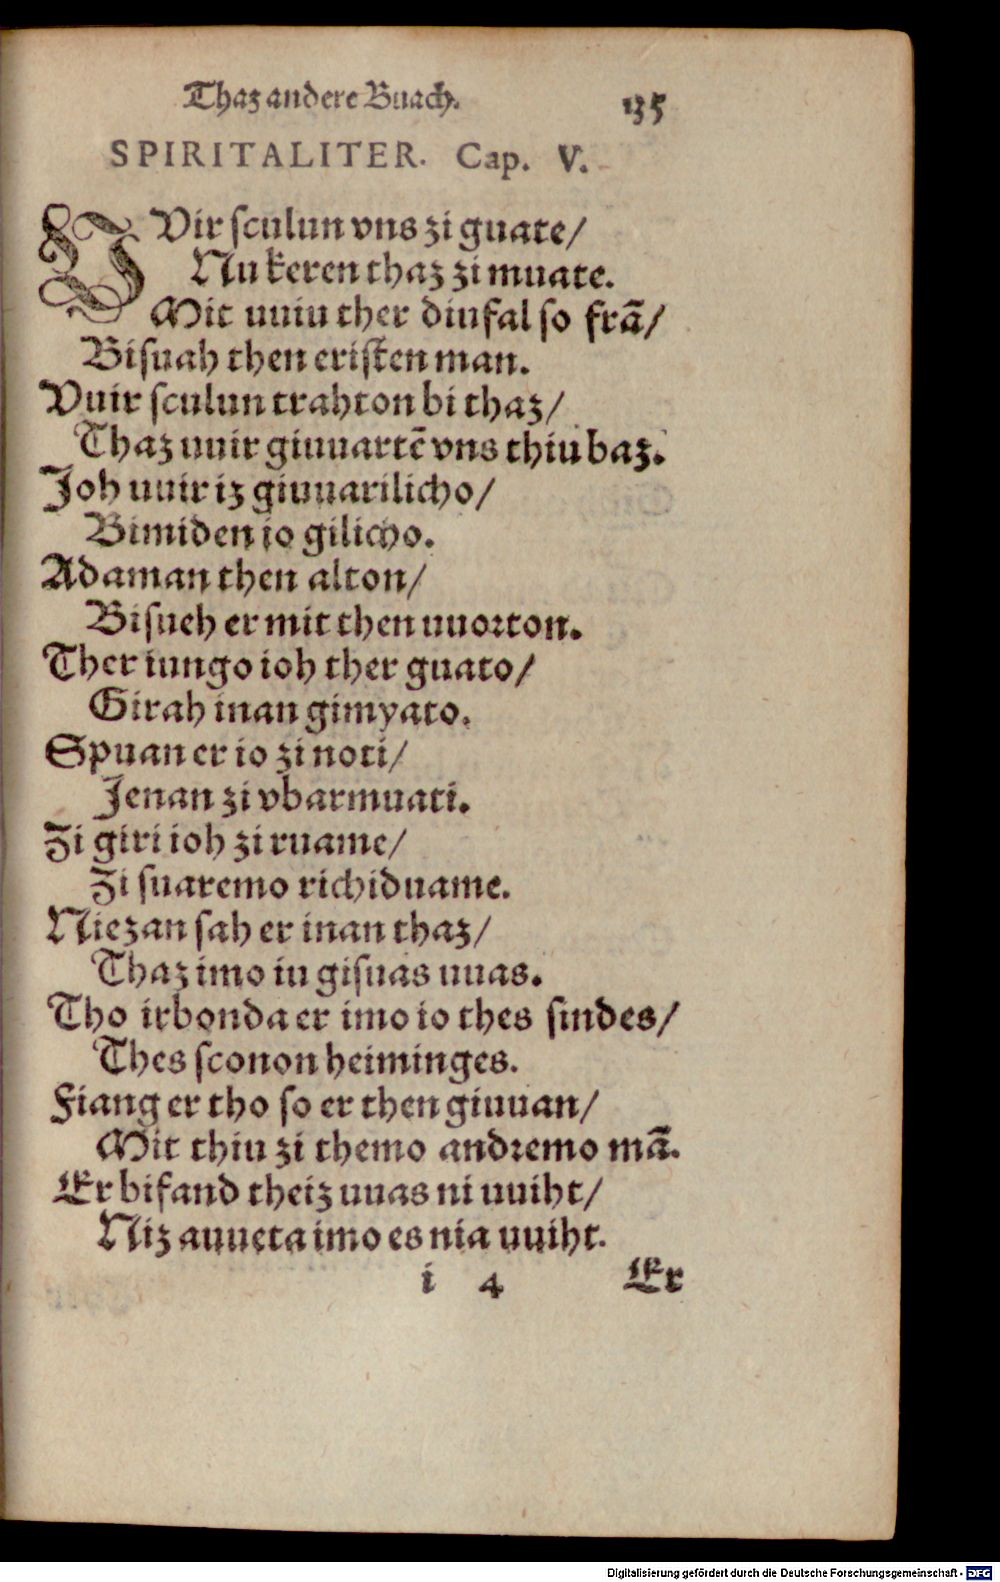 Thaz andere Buach. 135
SPIRITALITER. Cap. V.
VVir sculun vns zi guate/
Nu keren thaz zi muate.
Mit uuiu ther diufal so frā/
Bisuah then eristen man.
Vuir sculun trahton bi thaz/
Thaz uuir giuuartē vns thiu baz.
Joh uuir iz giuuarilicho/
Bimiden io gilicho.
Adaman then alton/
Bisueh er mit then uuorton.
Ther iungo ioh ther guato/
Girah inan gimyato.
Spuan er io zi noti/
Jenan zi vbarmuati.
Zi giri ioh zi ruame/
Zi suaremo richiduame.
Niezan sah er inan thaz/
Thaz imo iu gisuas uuas.
Tho irbonda er imo io thes sindes/
Thes sconon heiminges.
Fiang er tho so er then giuuan/
Mit thiu zi themo andremo mā.
Er bifand theiz uuas ni uuiht/
Niz auueta imo es nia uuiht.
i 4 Er
Digitalisierung gefördert durch die Deutsche Forschungsgemeinschaft - DFG